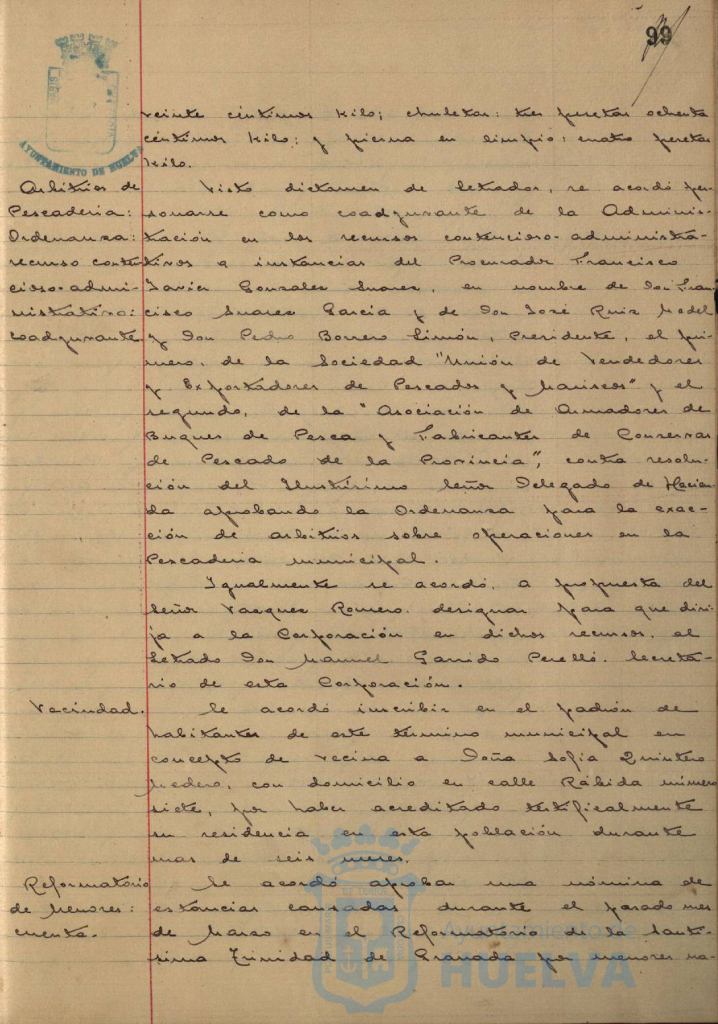 99
AYUNTAMIENTO DE HUELVA
veinte céntimos kilo; chuletas: tres pesetas ochenta
céntimos kilo; y pierna en limpio: cuatro pesetas
kilo.
Arbitrios de
Pescaderia:
Ordenanza:
recurso conten
cioso-admi-
nistrativo:
coadyuvante
Visto dictamen de Letrador, se acordó per-
sonarse como coadyuvante de la Adminis-
tración en los recursos contencioso-administra-
tivos a instancias del Procurador Francisco
Javier Gonzalez Suarez, en nombre de Don Fran
cisco Suarez García y de Don José Ruiz Medel
y Don Pedro Borrero Limón, Presidente, el pri-
mero, de la Sociedad "Unión de Vendedores
y Exportadores de Pescados y Mariscos" y el
segundo, de la "Asociación de Armadores de
Buques de Pesca y Fabricantes de Conservas
de Pescado de la Provincia", contra resolu-
ción del Ilustrísimo Señor Delegado de Hacien-
da aprobando la Ordenanza para la exac-
ción de arbitrios sobre operaciones en la
Pescaderia municipal.
Igualmente se acordó, a propuesta del
Señor Vazquez Romero, designar para que diri-
ja a la Corporación en dichos recursos, al
Letrado Don Manuel Garrido Perelló, Secreta-
rio de esta Corporación.
Vecindad.
Se acordó inscribir en el padrón de
habitantes de este término municipal en
concepto de vecina a Doña Sofia Quintero
Medero, con domicilio en calle Rábida número
siete, por haber acreditado testificalmente
su residencia en esta población durante
mas de seis meses.
Reformatorio
de Menores:
cuenta.
Se acordó aprobar una nómina de
estancias causadas durante el pasado mes
de Marzo en el Reformatorio de la Santí-
sima Trinidad de Granada por menores na-
Ayuntamiento de
HUELVA